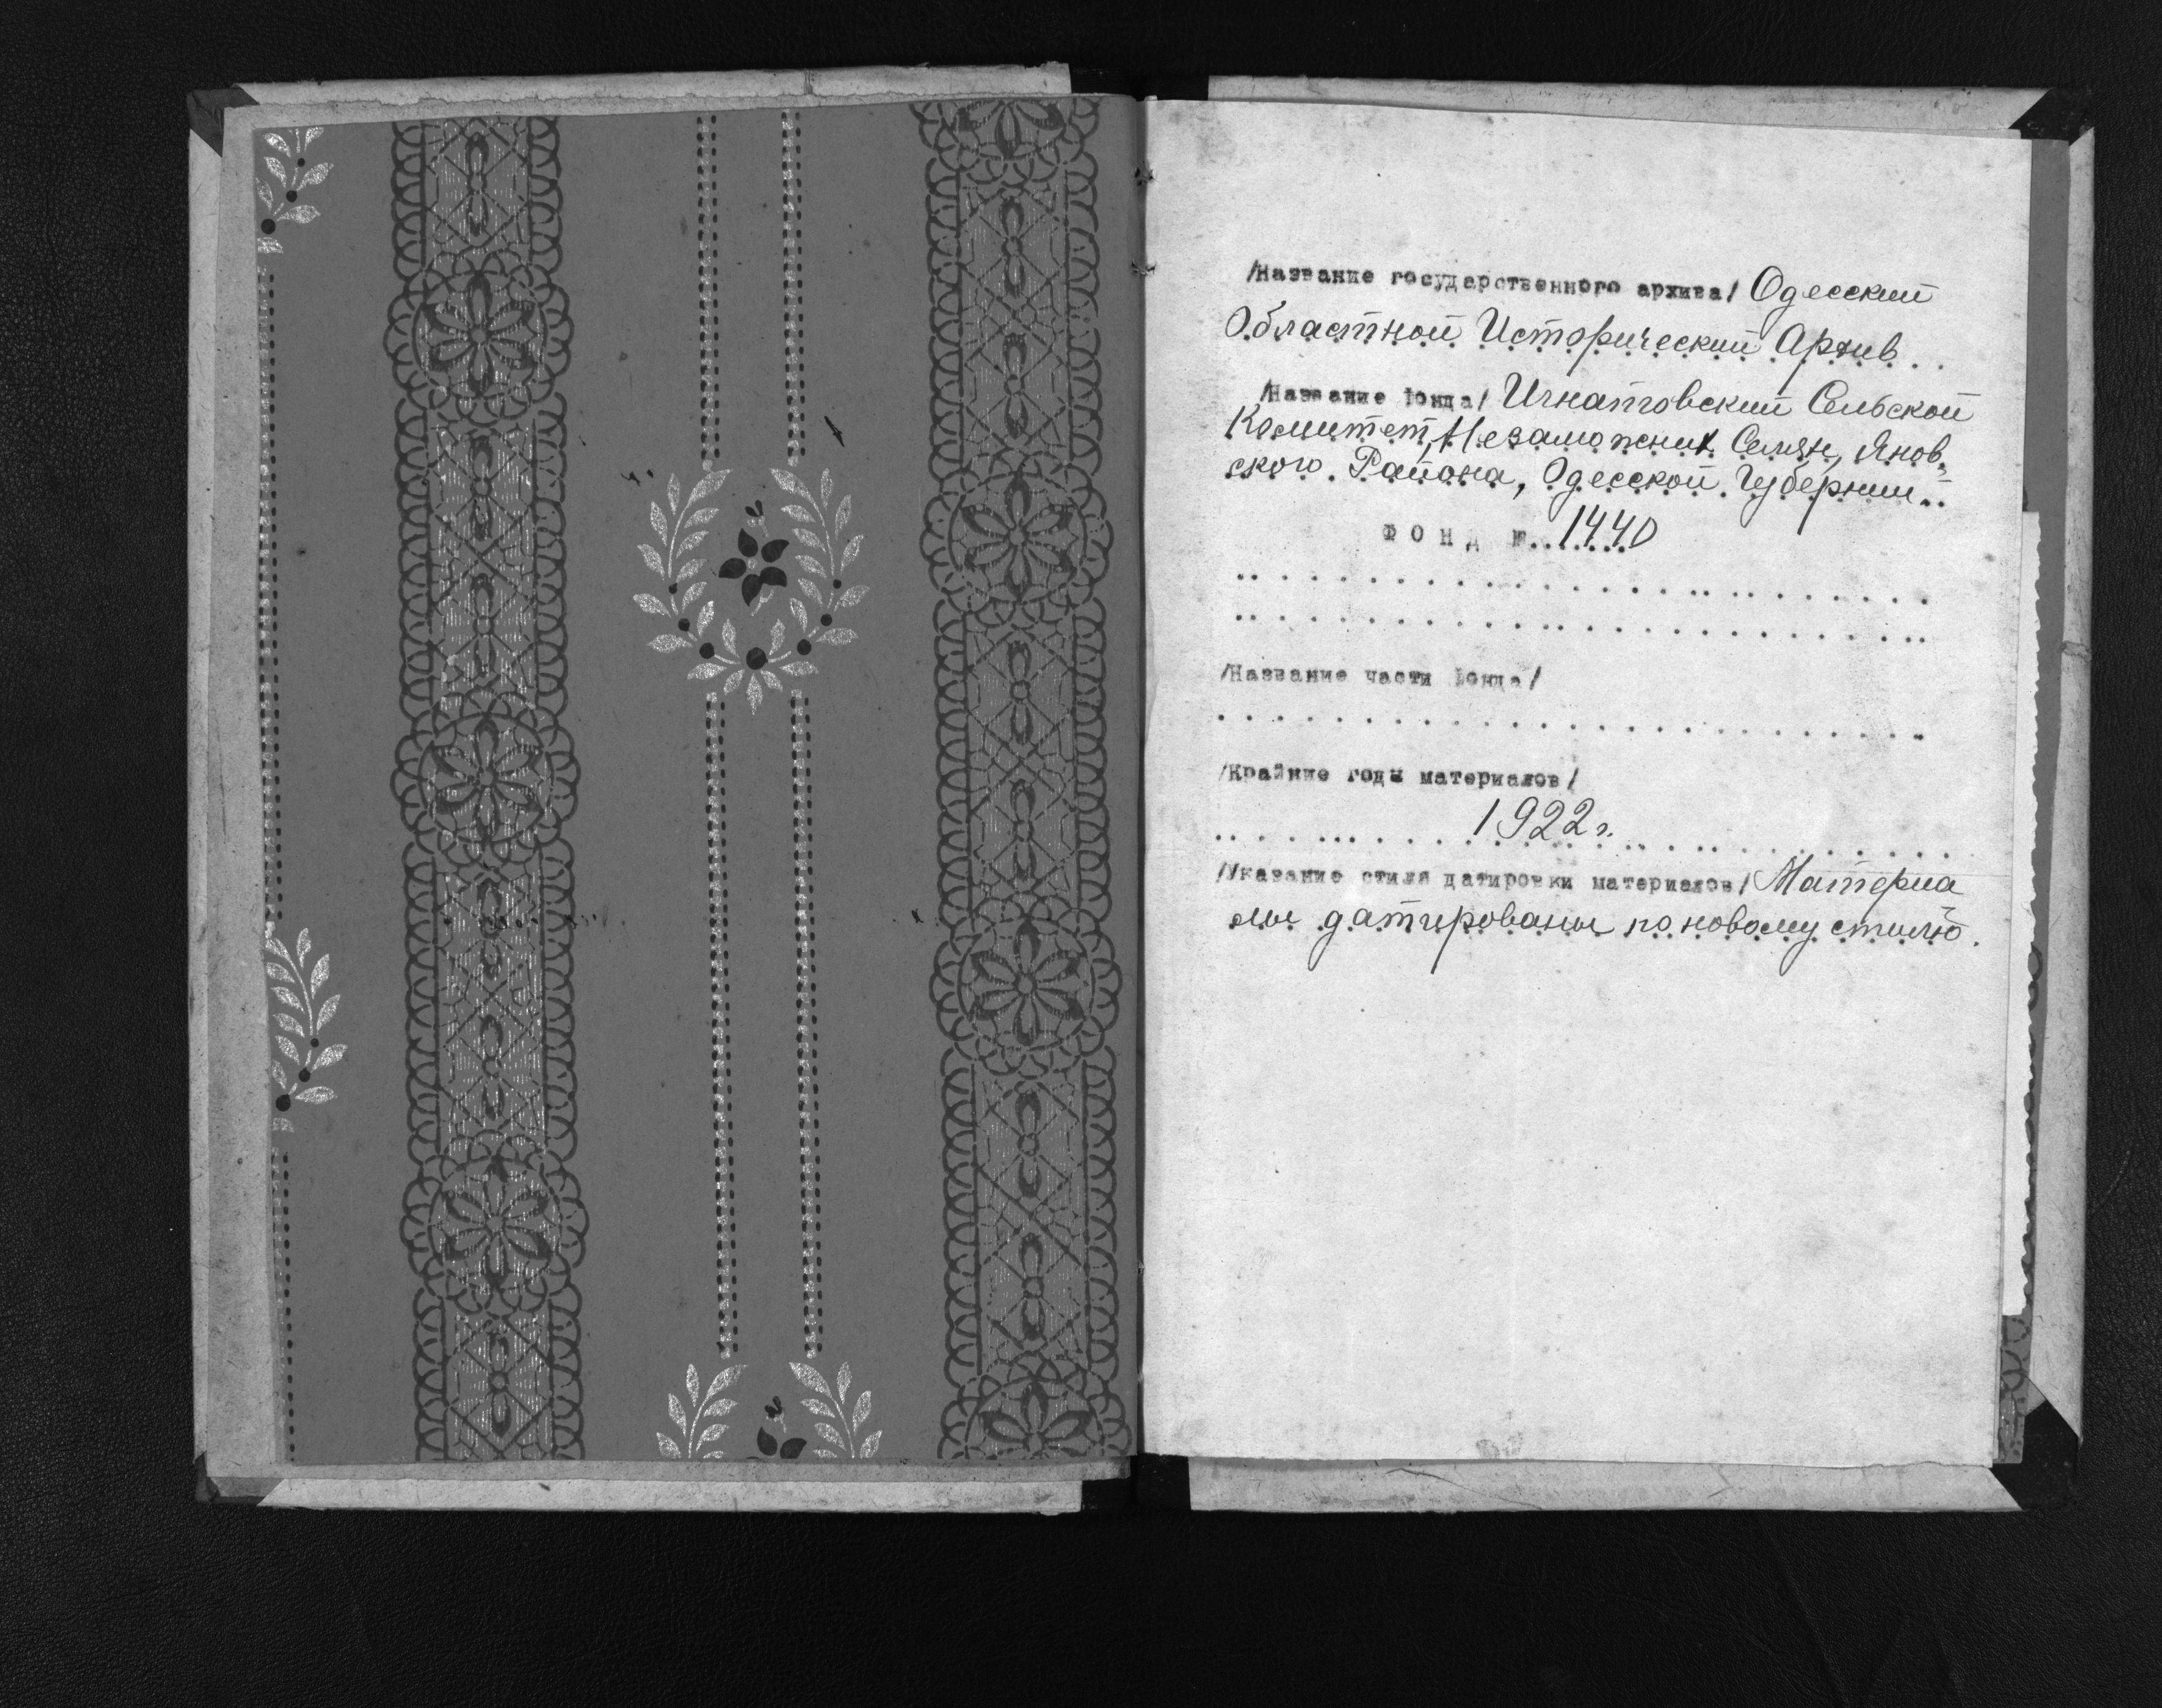 /Название государственного архива/ Одесский
Областной Исторический Архив..
/Название фонда/ Игнатовский Сельской
Комитет, Незаможних Селян, Янов-
ского Района, Одесской Губернии..
ФОНД №..1440
/Название части фонда/
/Крайние годы материалов/
1922 г.
/Указание стиля датировки материалов/ Материа
лы датированы по новому стилю.